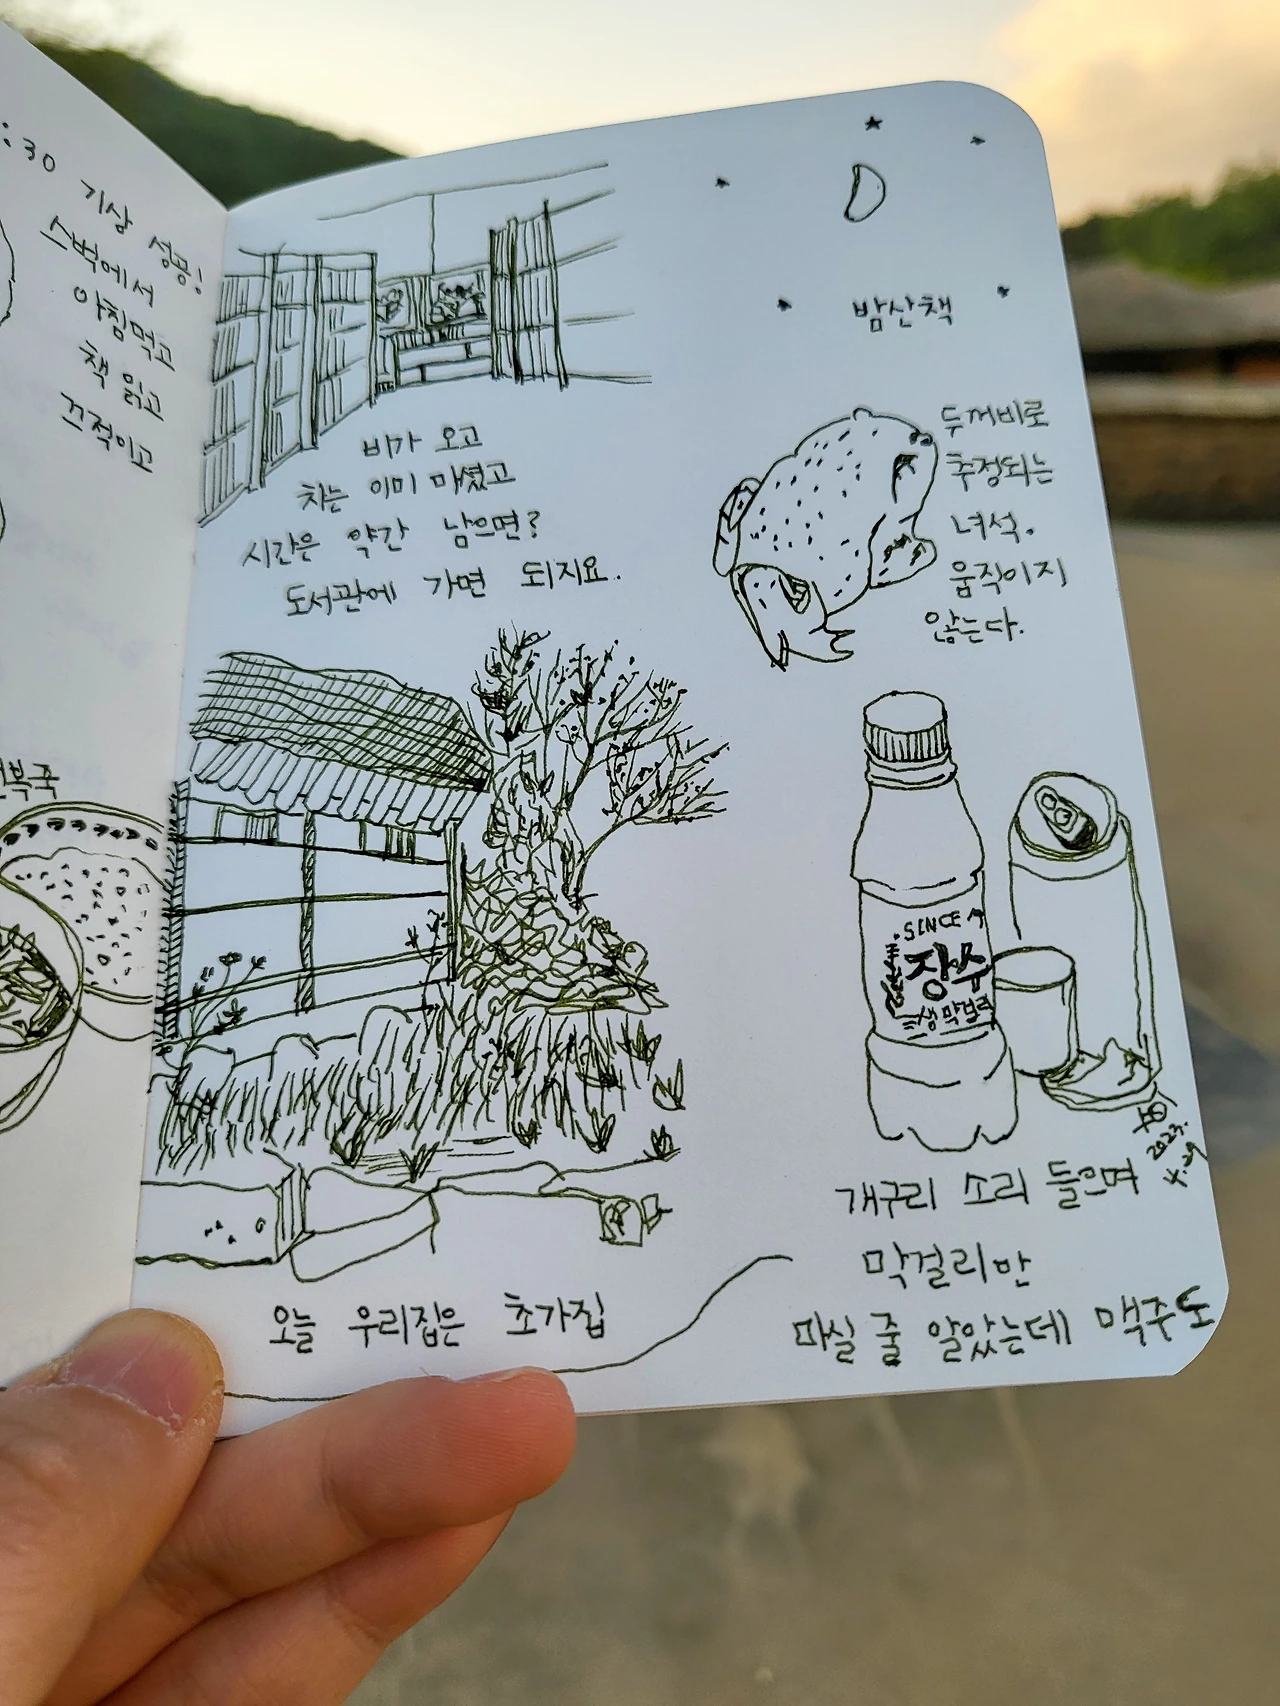 :30 기상 성공!
스벅에서
아침먹고
책 읽고
끄적이고
복죽
비가 오고
차는 이미 마셨고
시간은 약간 남으면?
도서관에 가면 되지요..
오늘 우리집은 초가집
밤산책
두꺼비로
추정되는
녀석.
움직이지
않는다.
SINCE
장수
생막걸리
2023.
4.29
개구리 소리 들으며
막걸리만
마실 줄 알았는데 맥주도